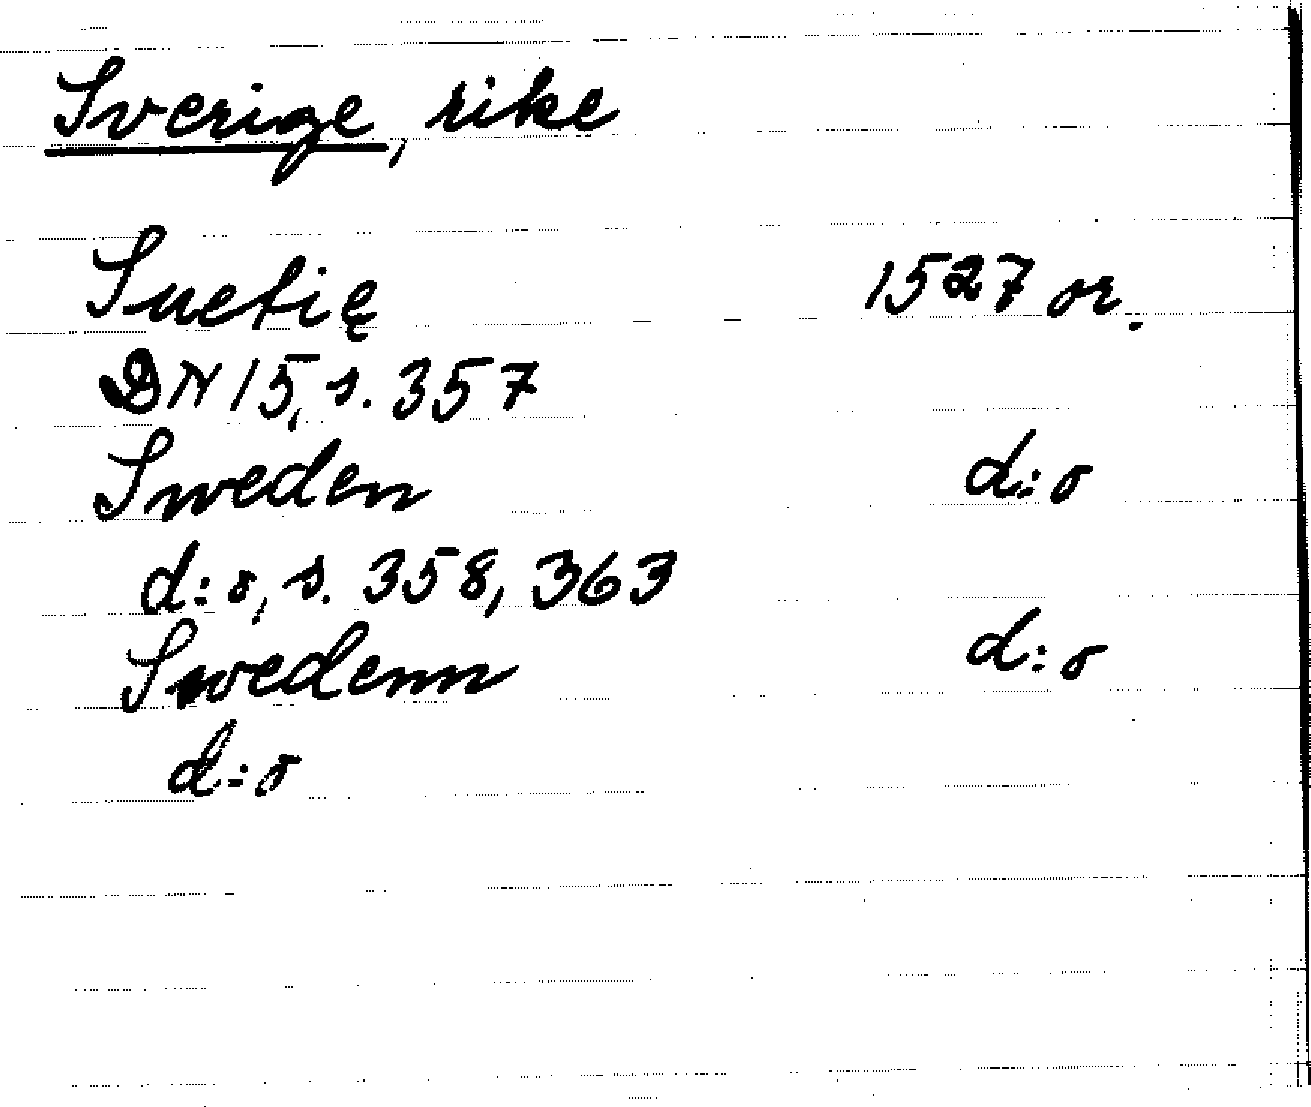 Sverige, rike
Suetię 1527 or.
DN 15, s. 357
Sweden d:o
d:o, s. 358, 363
Swedenn d:o
d:o